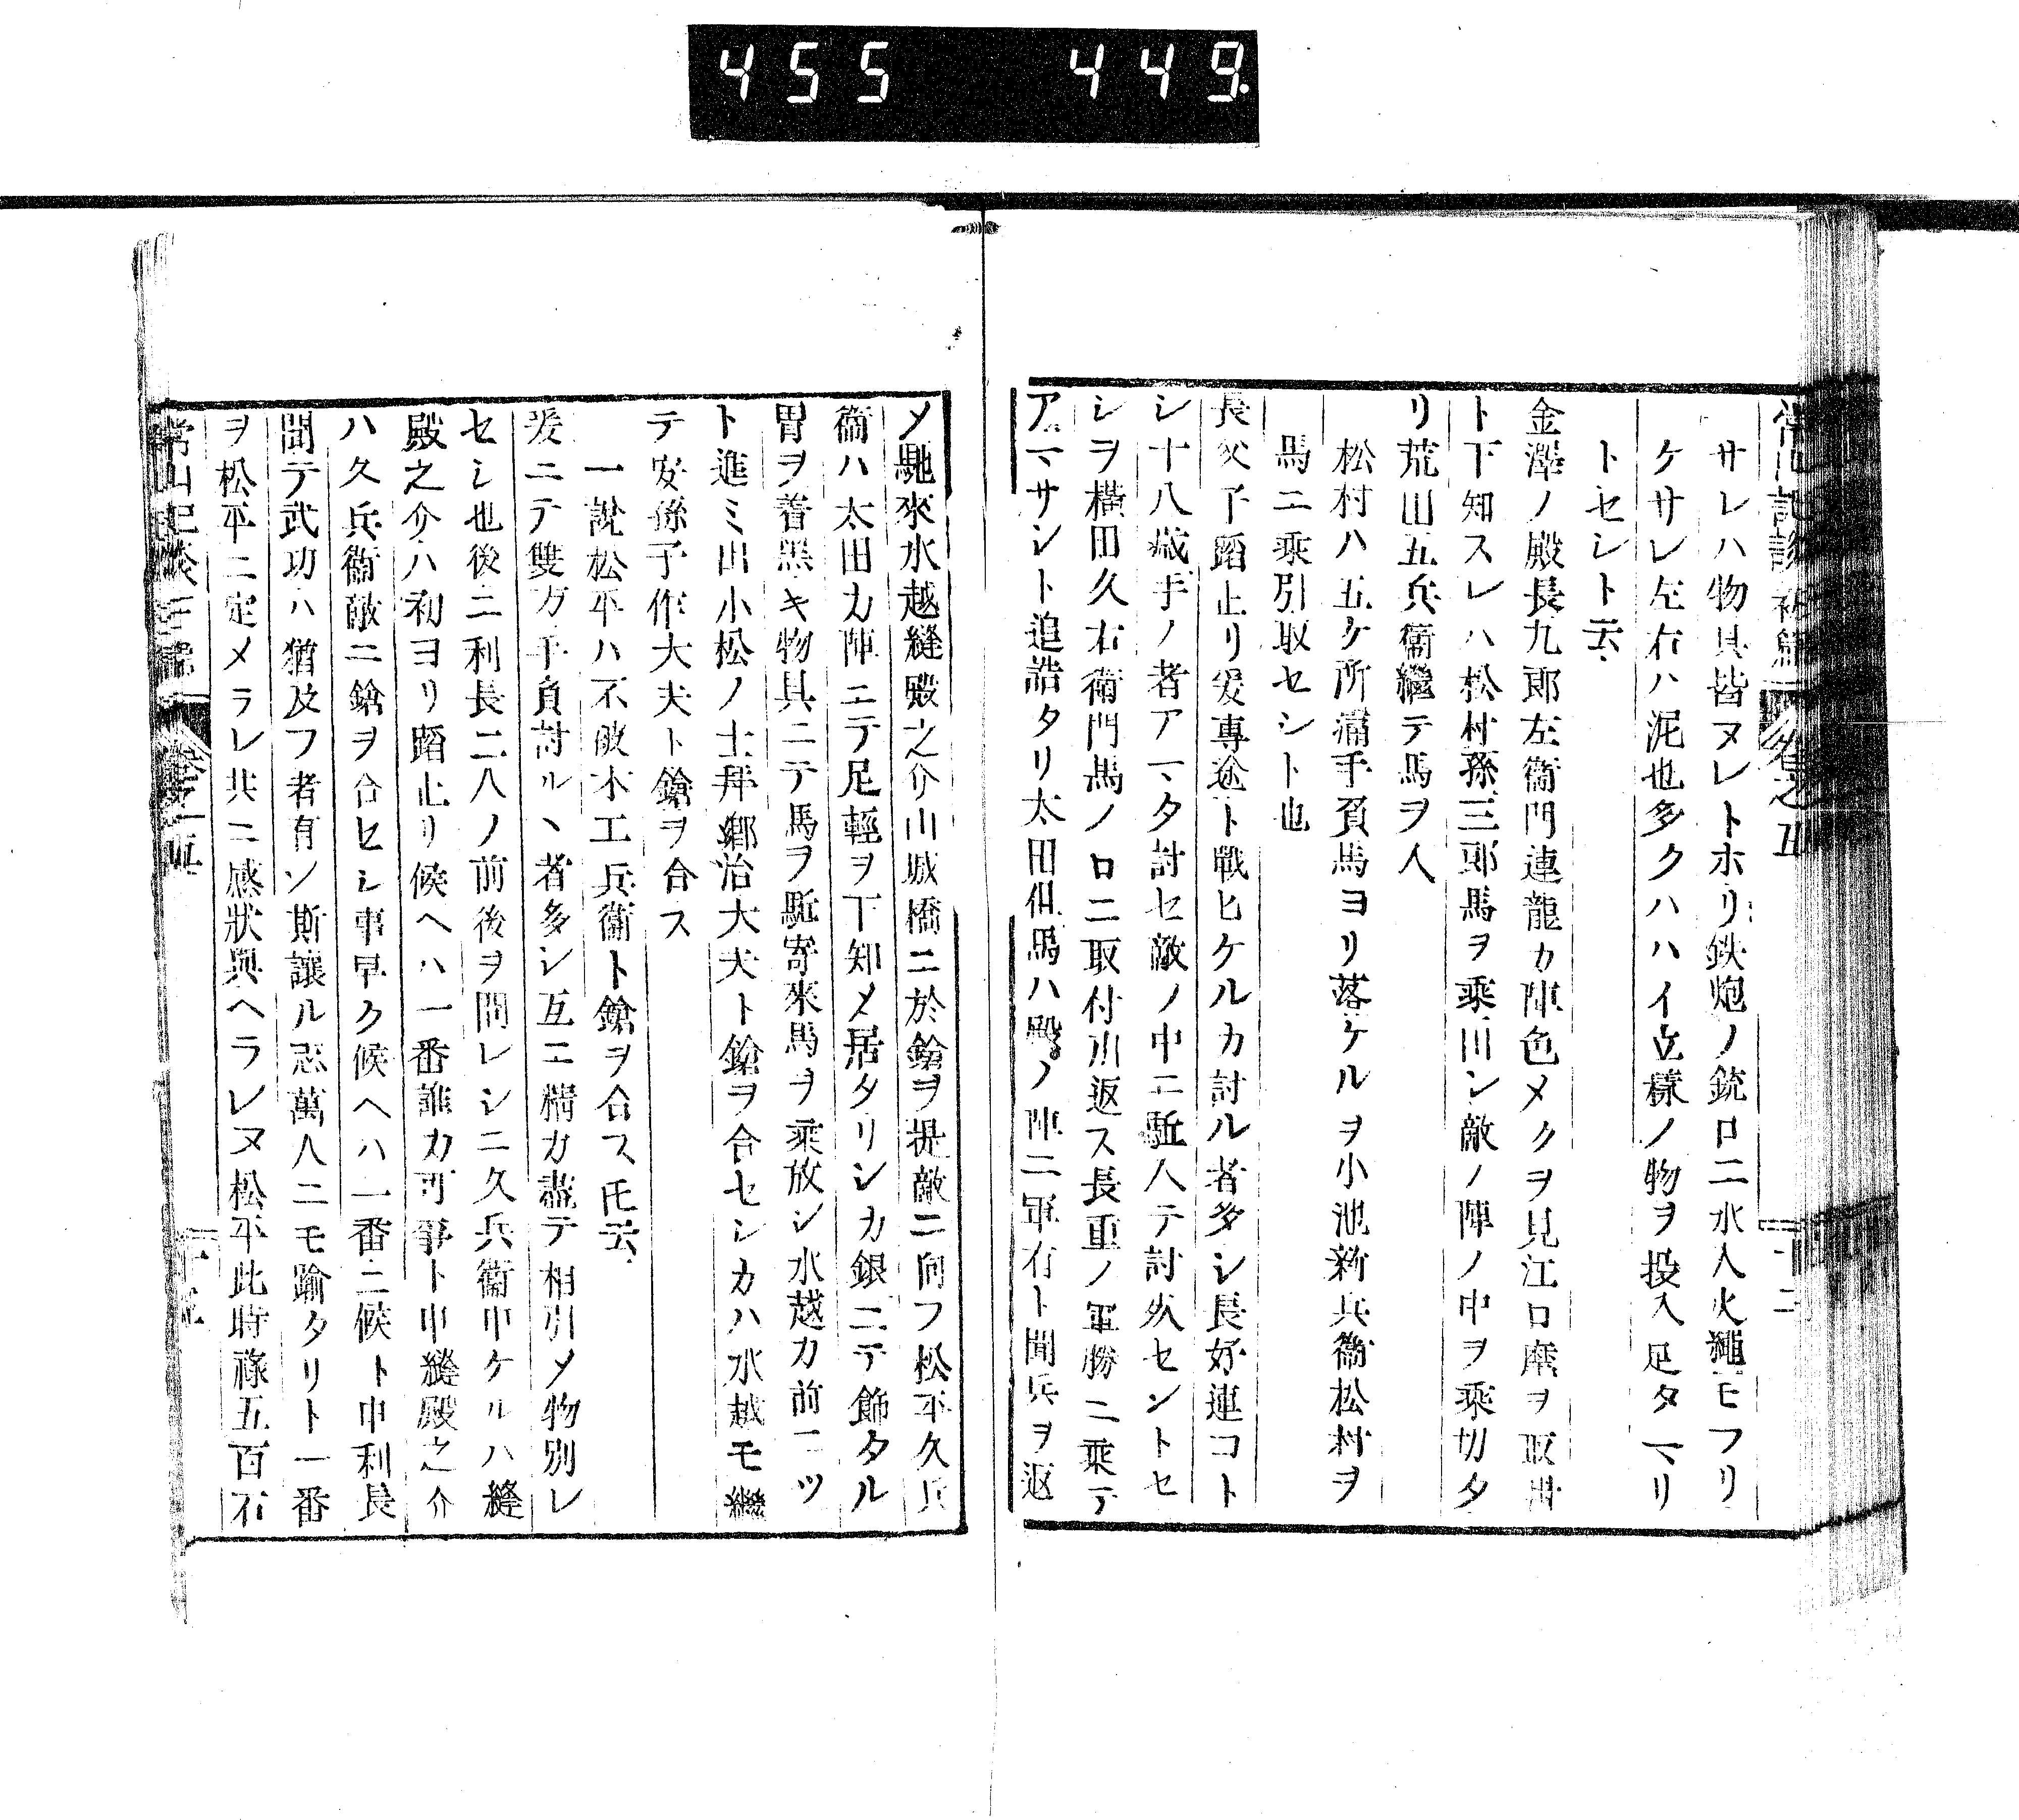 455 449.
サレハ物具皆ヌレトホリ鉄炮ノ銃口ニ水入火繩モフリ
ケサレ左右ハ泥也多クハハイ立様ノ物ヲ投入足タマリ
トセシト云
金澤ノ殿長九郎左衞門連龍カ陣色メクヲ見江口麾ヲ取
ト下知スレハ松村孫三郎馬ヲ乘出シ敵ノ陣ノ中ヲ乘切タ
リ荒田五兵衞繼テ馬ヲ入
松村ハ五ケ所痛手負馬ヨリ落ケルヲ小池新兵衞松村ヲ
馬ニ乘引取セシト也
長父子蹈止リ爰専途ト戰ヒケルカ討ル者多シ長好連コト
シ十八歳手ノ者アマタ討セ敵ノ中ニ駈入テ討死セントセ
シヲ横田久右衛門馬ノ口ニ取付出返ス長重ノ軍勝ニ乘テ
アマサント追詰タリ太田但馬ハ殿ノ陣ニ軍有ト聞兵ヲ返
メ馳來水越縫殿之介山城橋ニ於鎗ヲ提敵ニ向フ松平久兵
衞ハ太田カ陣ニテ足輕ヲ下知メ居タリシカ銀ニテ飾タル
冑ヲ着黒キ物具ニテ馬ヲ駈寄來馬ヲ乘放シ水越カ前ニツ
ト進ミ出小松ノ士拜郷治大夫ト鎗ヲ合セシカハ水越モ繼
テ安孫子作大夫ト鎗ヲ合ス
一說松平ハ不破木工兵衞ト鎗ヲ合ス氏云
爰ニテ雙方手負討ルヽ者多シ互ニ精力盡テ相引メ物別レ
セシ也後ニ利長二人ノ前後ヲ問レシニ久兵衞申ケルハ縫
殿之介ハ初ヨリ蹈止リ候ヘハ一番誰カ可事ト申縫殿之介
ハ久兵衞敵ニ鎗ヲ合セシ事早ク候ヘハ一番ニ候ト申利長
聞テ武功ハ猶及フ者有ン斯讓ル志萬人ニモ踰タリト一番
ヲ松平ニ定メラレ共ニ感狀與ヘラレヌ松平此時祿五百石